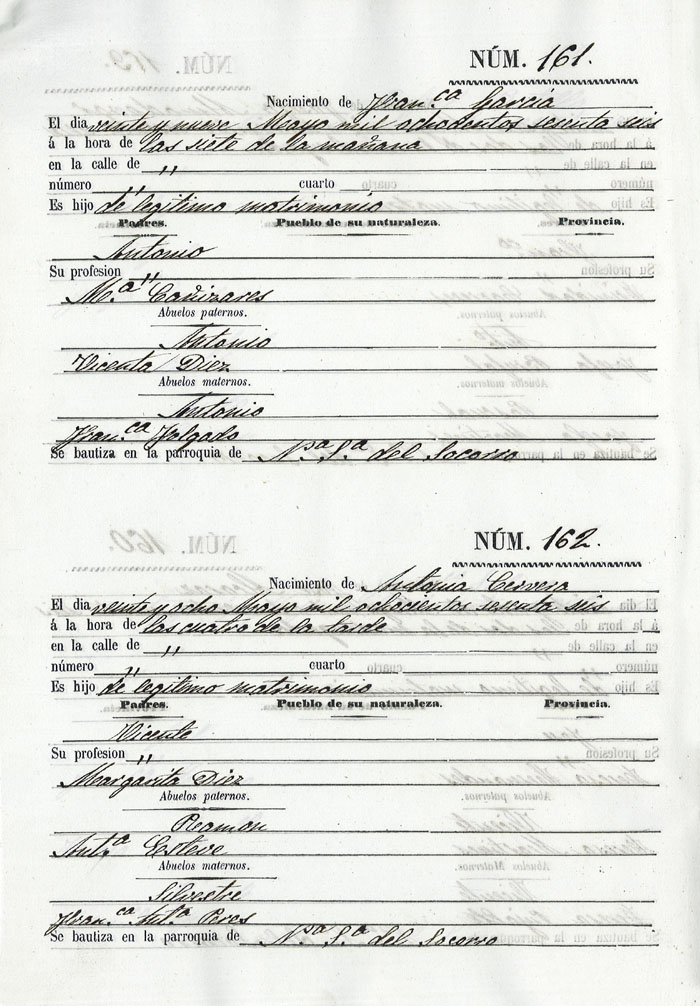 NÚM. 161.
Nacimiento de Fran.ca García
El dia veinte y nueve Mayo mil ochocientos sesenta seis
á la hora de las siete de la mañana
en la calle de "
número " cuarto
Es hijo de legitimo matrimonio
Padres. Pueblo de su naturaleza. Provincia.
Antonio
Su profesion "
M.a Cañizares
Abuelos paternos.
Antonio
Vicenta Diez
Abuelos maternos.
Antonio
Fran.ca Folgado
Se bautiza en la parroquia de N.a S.a del Socorro
NÚM. 162.
Nacimiento de Antonia Cervera
El dia veinte y ocho Mayo mil ochocientos sesenta seis
á la hora de las cuatro de la tarde
en la calle de "
número " cuarto
Es hijo de legitimo matrimonio
Padres. Pueblo de su naturaleza. Provincia.
Vicente
Su profesion "
Margarita Diez
Abuelos paternos.
Ramon
Ant.a Esteve
Abuelos maternos.
Silvestre
Fran.ca Ant.a Peres
Se bautiza en la parroquia de N.a S.a del Socorro